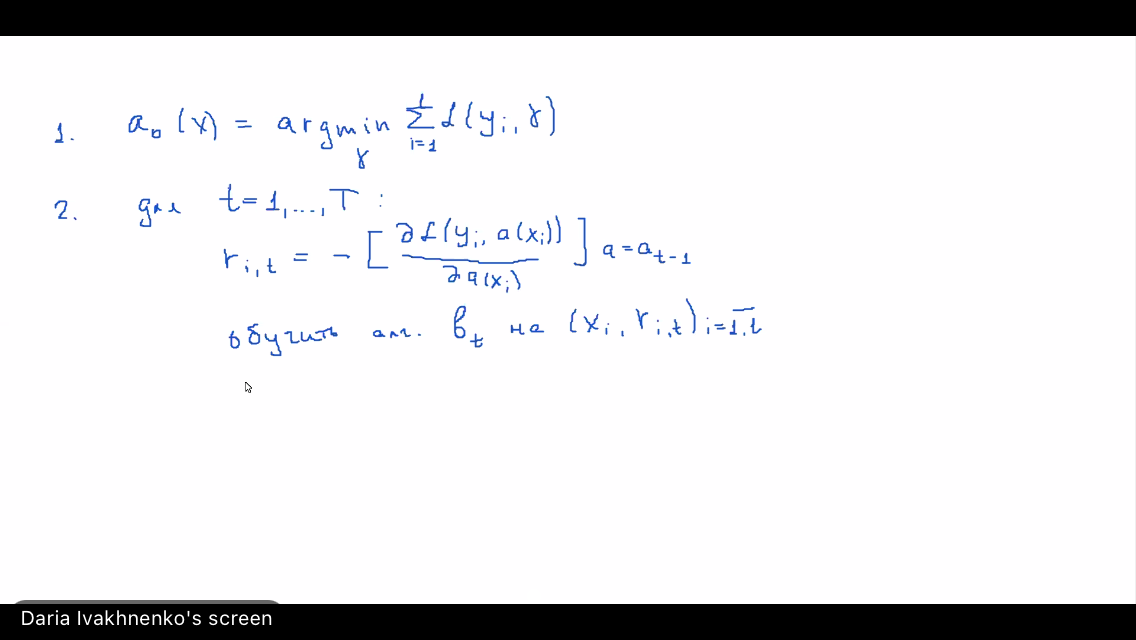 1. a₀(x) = argmin Σ L(yᵢ, γ)
γ i=1 l
2. для t=1,...,T :
rᵢ,ₜ = - [∂L(yᵢ, a(xᵢ)) / ∂a(xᵢ)] a=aₜ₋₁
обучить алг. bₜ на (xᵢ, rᵢ,ₜ) i=1,l
Daria Ivakhnenko's screen